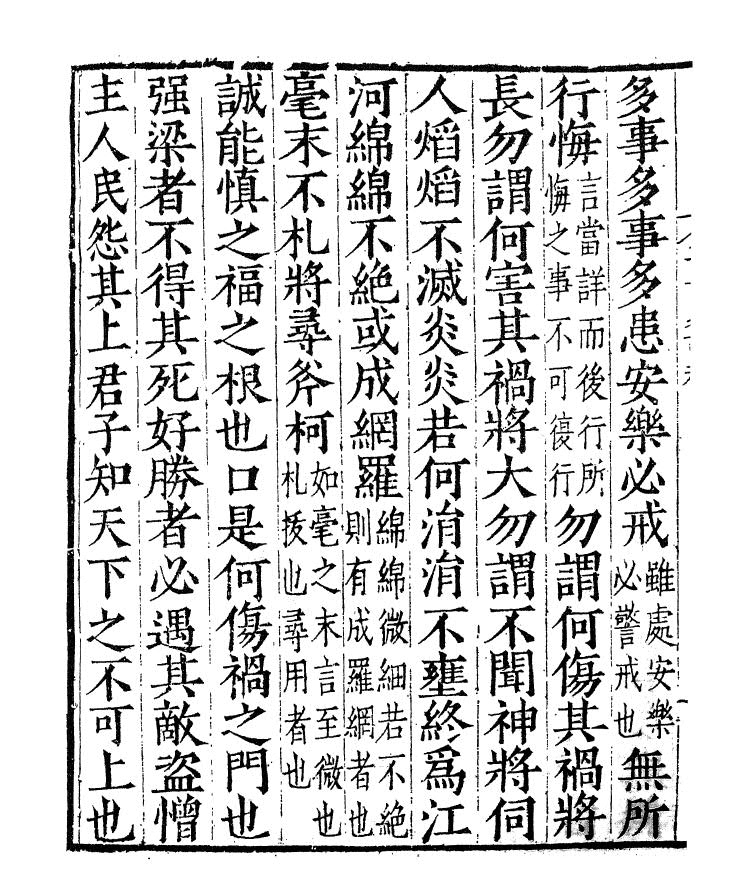 多事多事多患安樂必戒雖處安樂必警戒也無所
行悔言當詳而後行所悔之事不可復行勿謂何傷其禍將
長勿謂何害其禍將大勿謂不聞神將伺
人熖熖不滅炎炎若何涓涓不壅終爲江
河綿綿不絶或成網羅綿綿微細若不絶則有成羅網者也
毫末不札將尋斧柯如毫之末言至微也札拔也尋用者也
誠能慎之福之根也口是何傷禍之門也
强梁者不得其死好勝者必遇其敵盗憎
主人民怨其上君子知天下之不可上也